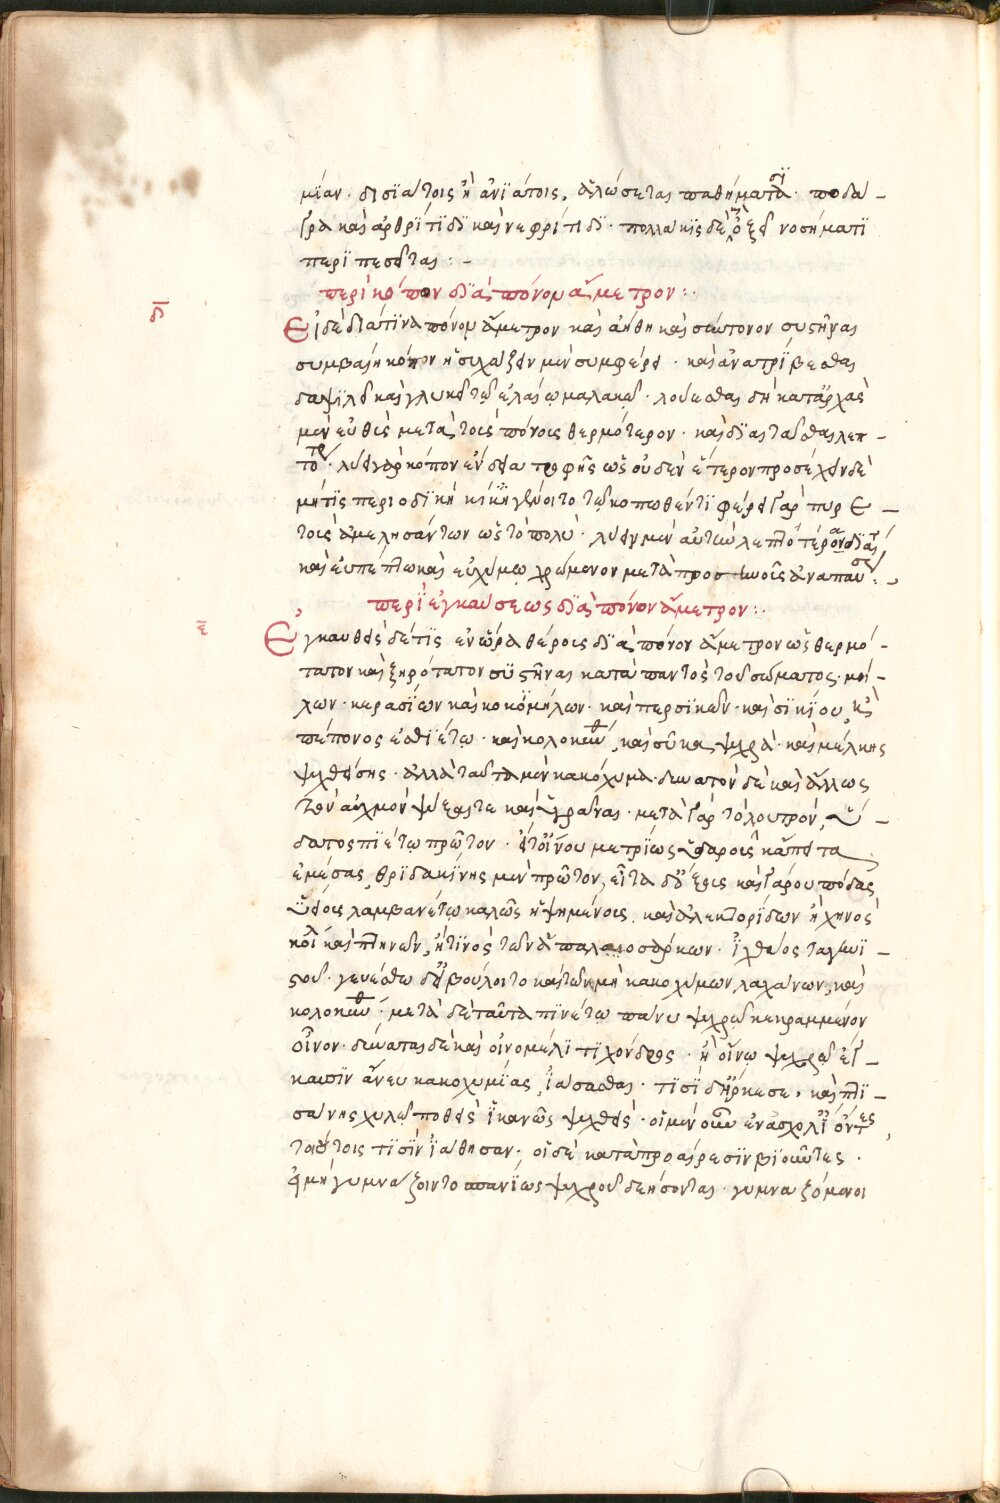 μίαν · δισϊάτοις ἢ ἀνϊάτοις, ἁλώσεται παθήμασϊ · ποδά –
γρα καὶ ἀρθρίτϊδϊ καὶ νεφρίτιδϊ · πολλάκϊς δὲ ὀξεῖ νοσήματϊ
περϊπεσεῖται : –
περὶ κόπον δϊὰ πόνον ἄμετρον :·
δ
Εἰ δὲ διά τϊνα πόνον ἄμετρον καὶ ἀήθη καὶ σύντονον συστῆναι
συμβαίη κόπον ἡσυχάζειν μὲν συμφέρει · καὶ ἀνατρϊβεσθαι
δαψϊλεῖ καὶ γλυκεῖ τῷ ἐλαίω μαλακῶ · λούεσθαι δὴ κατάρχὰς
μὲν εὐθὺς μετὰ τοὺς πόνους θερμότερον · καὶ δϊαιτᾶσθαι λεπ –
τῶ · λύει γὰρ κόπον ἔνδεια τροφῆς ὡς οὐδὲν ἕτερον προσέχειν δὲ
μή τϊς περιοδϊκὴ κίνησις γένοιτο τῷ κοπωθέντϊ φέρει γὰρ πυρε –
τοὺς ἀμελησάντων ὡς τὸ πολύ · λύειν μὲν αὐτὴν λεπτοτέραν δϊαι
καὶ εὐπέπτω καὶ εὐχύμω χρώμενον μετὰ προσηνοῦς ἀναπαύσε :
περϊ ἐγκαύσεως δϊὰ πόνον ἄμετρον :·
ε
Εγκαυθεὶς δέ τϊς ἐν ὥρα θέρους δϊὰ πόνον ἄμετρον ὡς θερμό –
τατον καὶ ξηρότατον συστῆναι κατὰ παντὸς τοῦ σώματος ·
χων · κερασίων καὶ κοκομήλων · καὶ περσϊκῶν · καὶ σϊκϊου,
πέπονος ἐσθϊέτω · καὶ κολοκυν, καὶ σῦκα, ψυχρά · καὶ μέλκης
ψυχθείσης · ἀλλὰ ταῦτα μὲν κακόχυμα · δυνατὸν δὲ καὶ ἄλλως
τὸν αὐχμὸν ψύξαι τε καὶ ὑγρᾶναι · μετὰ γὰρ τὸ λουτρόν, ὕ –
δατος πϊέτω πρῶτον · εἶτ οἴνου μετρϊως ὑδαροῦς κἄπειτα
ἐμέσας, θρϊδακίνης μὲν πρῶτον, εἶτα δι' ὄξους καὶ γάρου πόδας
ὑείους λαμβανέτω καλῶς ἡψημένους, καὶ ἀλεκτορϊδων ἢ χηνὸς
καὶ πτηνῶν, ἤ τϊνος τῶν ἁπαλοσάρκων · ἰχθύος
· γευέσθω δ' εἰ βούλοιτο καὶ τῶν μὴ κακοχύμων λαχάνων, καὶ
κολοκυν · μετὰ δὲ ταῦτα πϊνέτω πάνυ ψυχρῶ κεκραμμένον
οἶνον · δύναται δὲ καὶ οἰνομέλϊ τϊ χόνδρος · ἢ οἴνω ψυχρῶ ἔγ –
καυσϊν ἄνευ κακοχυμϊας, ϊάσασθαι · τϊσϊ δ' ἤρκεσε, καὶ πτϊ –
σάνης χυλῷ ποθεὶς ϊκανῶς ψυχθείς · οἱ μὲν οὖν ἐν ἀσχολϊα ὄντες,
τούτοις τϊσϊν ϊάθησαν · οἱ δὲ κατὰ προαίρεσϊν βϊοῦντες ·
εἰ μὴ γυμνάζοιντο σπανϊως ψυχροῦ δεήσονται · γυμναζόμενοι